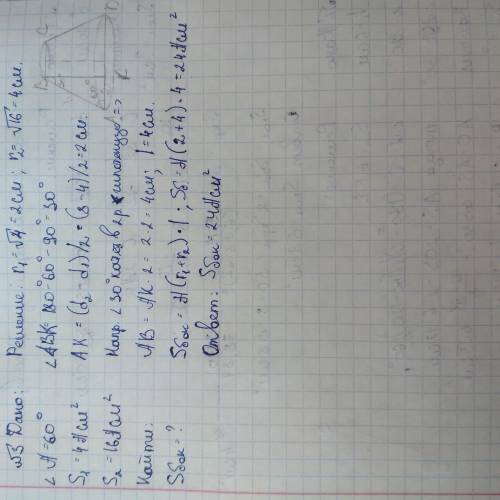 №3 Дано:
∠A=60°
S₁=4πсм²
S₂=16πсм²
Найти:
Sбок=?
Решение: r₁=√4=2см; r₂=√16=4см.
∠ABK=180°-60°-90°=30°
AK=(d₂-d₁)/2=(8-4)/2=2см.
Напр. ∠30° катет в 2р < гипотенузы. =>
AB=AK·2=2·2=4см; l=4см.
Sбок=π(r₁+r₂)·l; Sб=π(2+4)·4=24πсм²
Ответ: Sбок=24πсм²
B
C
A
K
D
60°